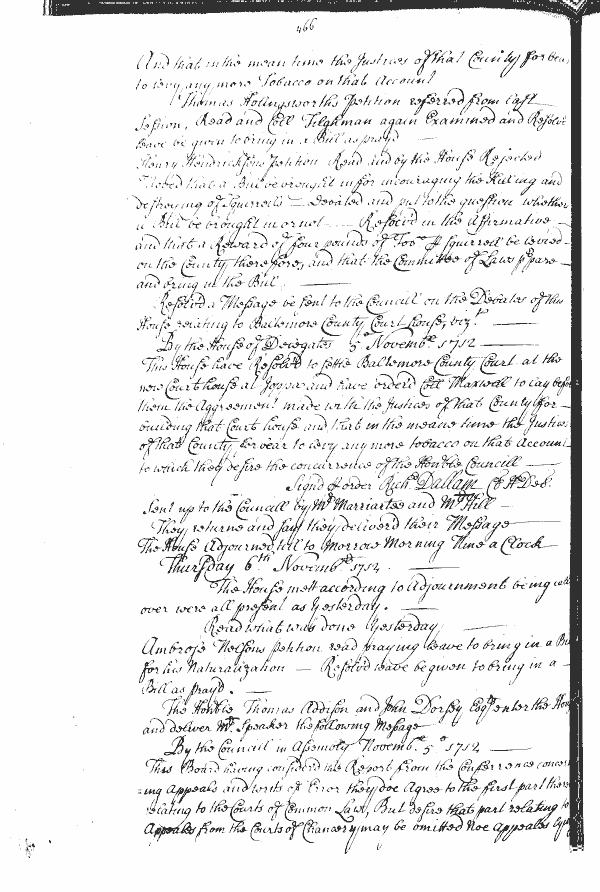 466
And that in the mean time the Justices of that County forbear
to levy any more Tobacco on that Account
Thomas Hollingsworths Petition referred from last
Session, Read and Coll Tilghman again Examined and Resolvd
leave be given to bring in a Bill as prayd
Henry Hendricksons Petition Read and by the House Rejected
that a Bill be brought in for incouraging the Killing and
destroying of Squirrells — Debated and put to the question whether
a Bill be brought in or not — Resolvd in the Affirmative —
and that a Reward of four pounds of Tobo p Squirrell be levied
on the County therefore, and that the Committee of Laws ppare
and bring in the Bill —
Resolvd a Message be sent to the Councill on the Debates of this
House relating to Baltemore County Court house, vizt. —
By the House of Delegates 5o Novembr 1712 —
This House have Resolvd to settle Baltemore County Court at the
new Court house at Joppa and have ordered Coll Maxwell to lay before
them the Agreement made with the Justices of that County for
building that Court house and that in the meane time the Justices
of that County, forbear to levy any more tobacco on that Account
to which they desire the concurrence of the Honble Councill —
Signd p order Richd Dallam Cl H Del.
Sent up to the Councill by Mr Marriartee and Mr Hill —
They returne and say they deliverd their Message —
The House Adjourned till to Morrow Morning Nine a Clock
Thursday 6th Novembr 1712 —
The House mett according to Adjournment being call
over were all present as Yesterday. —
Read what was done Yesterday
Ambrose Nelsons petition read praying leave to bring in a Bill
for his Naturalization — Resolvd leave be given to bring in a —
Bill as prayd. —
The Honble Thomas Addison and John Dorsey Esqrs enter the House
and deliver Mr. Speaker the following Message
By the Councill in Assembly Novembr. 5o 1712 —
This Board having considerd the Report from the Conferrence concern
=ing Appeals and writs of Error they doe Agree to the first part thereof
relating to the Courts of Common Law, But desire that part relating to
Appeales from the Courts of Chancery may be omitted Noe Appeales